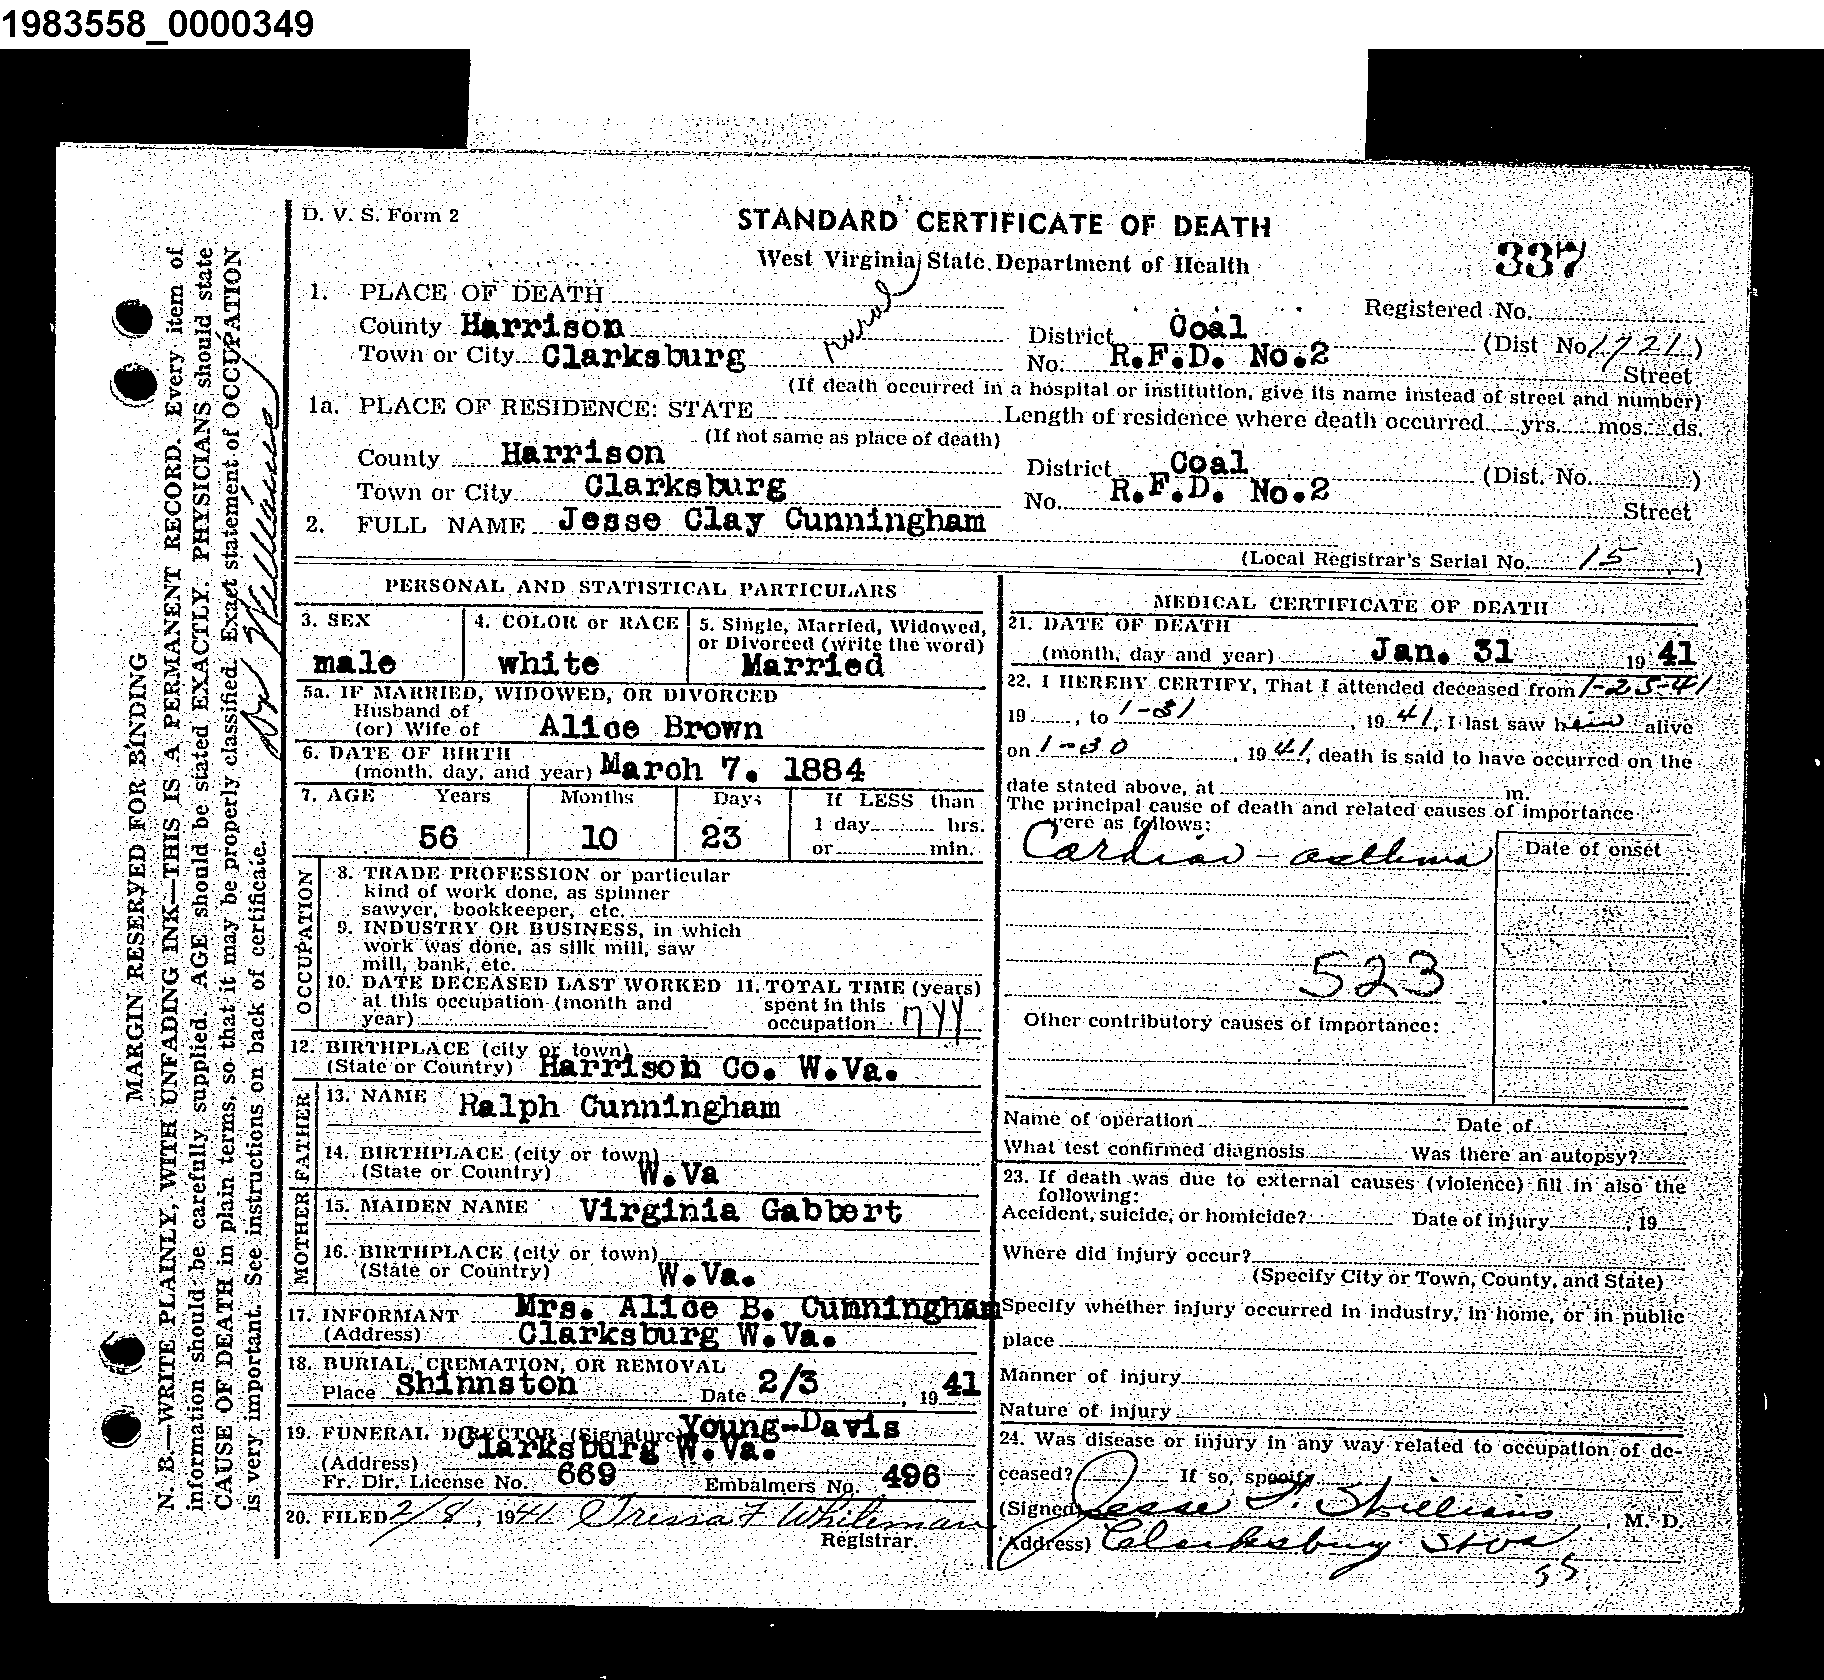 1983558_0000349
D. V. S. Form 2
STANDARD CERTIFICATE OF DEATH
West Virginia State Department of Health
337
1. PLACE OF DEATH
Registered No.
County Harrison
rural
District Coal
(Dist No. 1721)
Town or City Clarksburg
No. R.F.D. No.2 Street
(If death occurred in a hospital or institution, give its name instead of street and number)
1a. PLACE OF RESIDENCE: STATE
Length of residence where death occurred yrs. mos. ds.
(If not same as place of death)
County Harrison
District Coal (Dist. No. )
Town or City Clarksburg
No. R.F.D. No.2 Street
2. FULL NAME Jesse Clay Cunningham
(Local Registrar's Serial No. 15 )
PERSONAL AND STATISTICAL PARTICULARS
3. SEX
male
4. COLOR or RACE
white
5. Single, Married, Widowed,
or Divorced (write the word)
Married
5a. IF MARRIED, WIDOWED, OR DIVORCED
Husband of
(or) Wife of Alice Brown
6. DATE OF BIRTH
(month, day, and year) March 7. 1884
7. AGE Years Months Days If LESS than
1 day hrs.
56 10 23 or min.
OCCUPATION
8. TRADE PROFESSION or particular
kind of work done, as spinner
sawyer, bookkeeper, etc.
9. INDUSTRY OR BUSINESS, in which
work was done, as silk mill, saw
mill, bank, etc.
10. DATE DECEASED LAST WORKED
at this occupation (month and
year)
11. TOTAL TIME (years)
spent in this
occupation
12. BIRTHPLACE (city or town)
(State or Country) Harrison Co. W.Va.
FATHER
13. NAME Ralph Cunningham
14. BIRTHPLACE (city or town)
(State or Country) W.Va
MOTHER
15. MAIDEN NAME Virginia Gabbert
16. BIRTHPLACE (city or town)
(State or Country) W.Va.
17. INFORMANT Mrs. Alice B. Cunningham
(Address) Clarksburg W.Va.
18. BURIAL, CREMATION, OR REMOVAL
Place Shinnston Date 2/3, 1941
19. FUNERAL DIRECTOR (Signature) Young-Davis
(Address) Clarksburg W.Va.
Fr. Dir. License No. 669 Embalmers No. 496
20. FILED 2/8, 1941 Tressa F Whiteman
Registrar.
MEDICAL CERTIFICATE OF DEATH
21. DATE OF DEATH
(month, day and year) Jan. 31 1941
22. I HEREBY CERTIFY, That I attended deceased from 1-25-41
19 , to 1-31, 1941, I last saw him alive
on 1-30, 1941, death is said to have occurred on the
date stated above, at m.
The principal cause of death and related causes of importance
were as follows:
Cardiac - asthma
Date of onset
523
Other contributory causes of importance:
Name of operation Date of
What test confirmed diagnosis Was there an autopsy?
23. If death was due to external causes (violence) fill in also the
following:
Accident, suicide, or homicide? Date of injury , 19
Where did injury occur?
(Specify City or Town, County, and State)
Specify whether injury occurred in industry, in home, or in public
place
Manner of injury
Nature of injury
24. Was disease or injury in any way related to occupation of de-
ceased? If so, specify
(Signed) Jesse F. Williams, M. D.
(Address) Clarksburg W Va
MARGIN RESERVED FOR BINDING
N. B.—WRITE PLAINLY, WITH UNFADING INK—THIS IS A PERMANENT RECORD. Every item of
information should be carefully supplied. AGE should be stated EXACTLY. PHYSICIANS should state
CAUSE OF DEATH in plain terms, so that it may be properly classified. Exact statement of OCCUPATION
is very important. See instructions on back of certificate.
Dr Williams